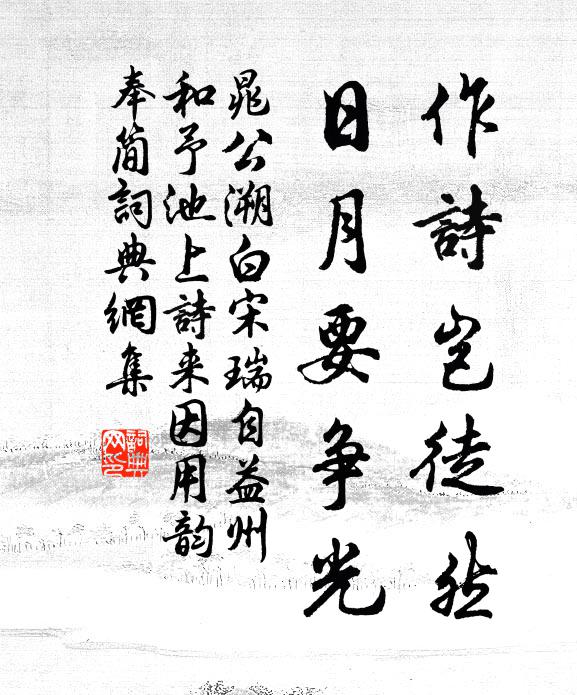 作詩岂徒然
日月要争光
晁公溯白宋瑞自益州
和予池上詩来因用韵
奉简詞典網集
詞典网印